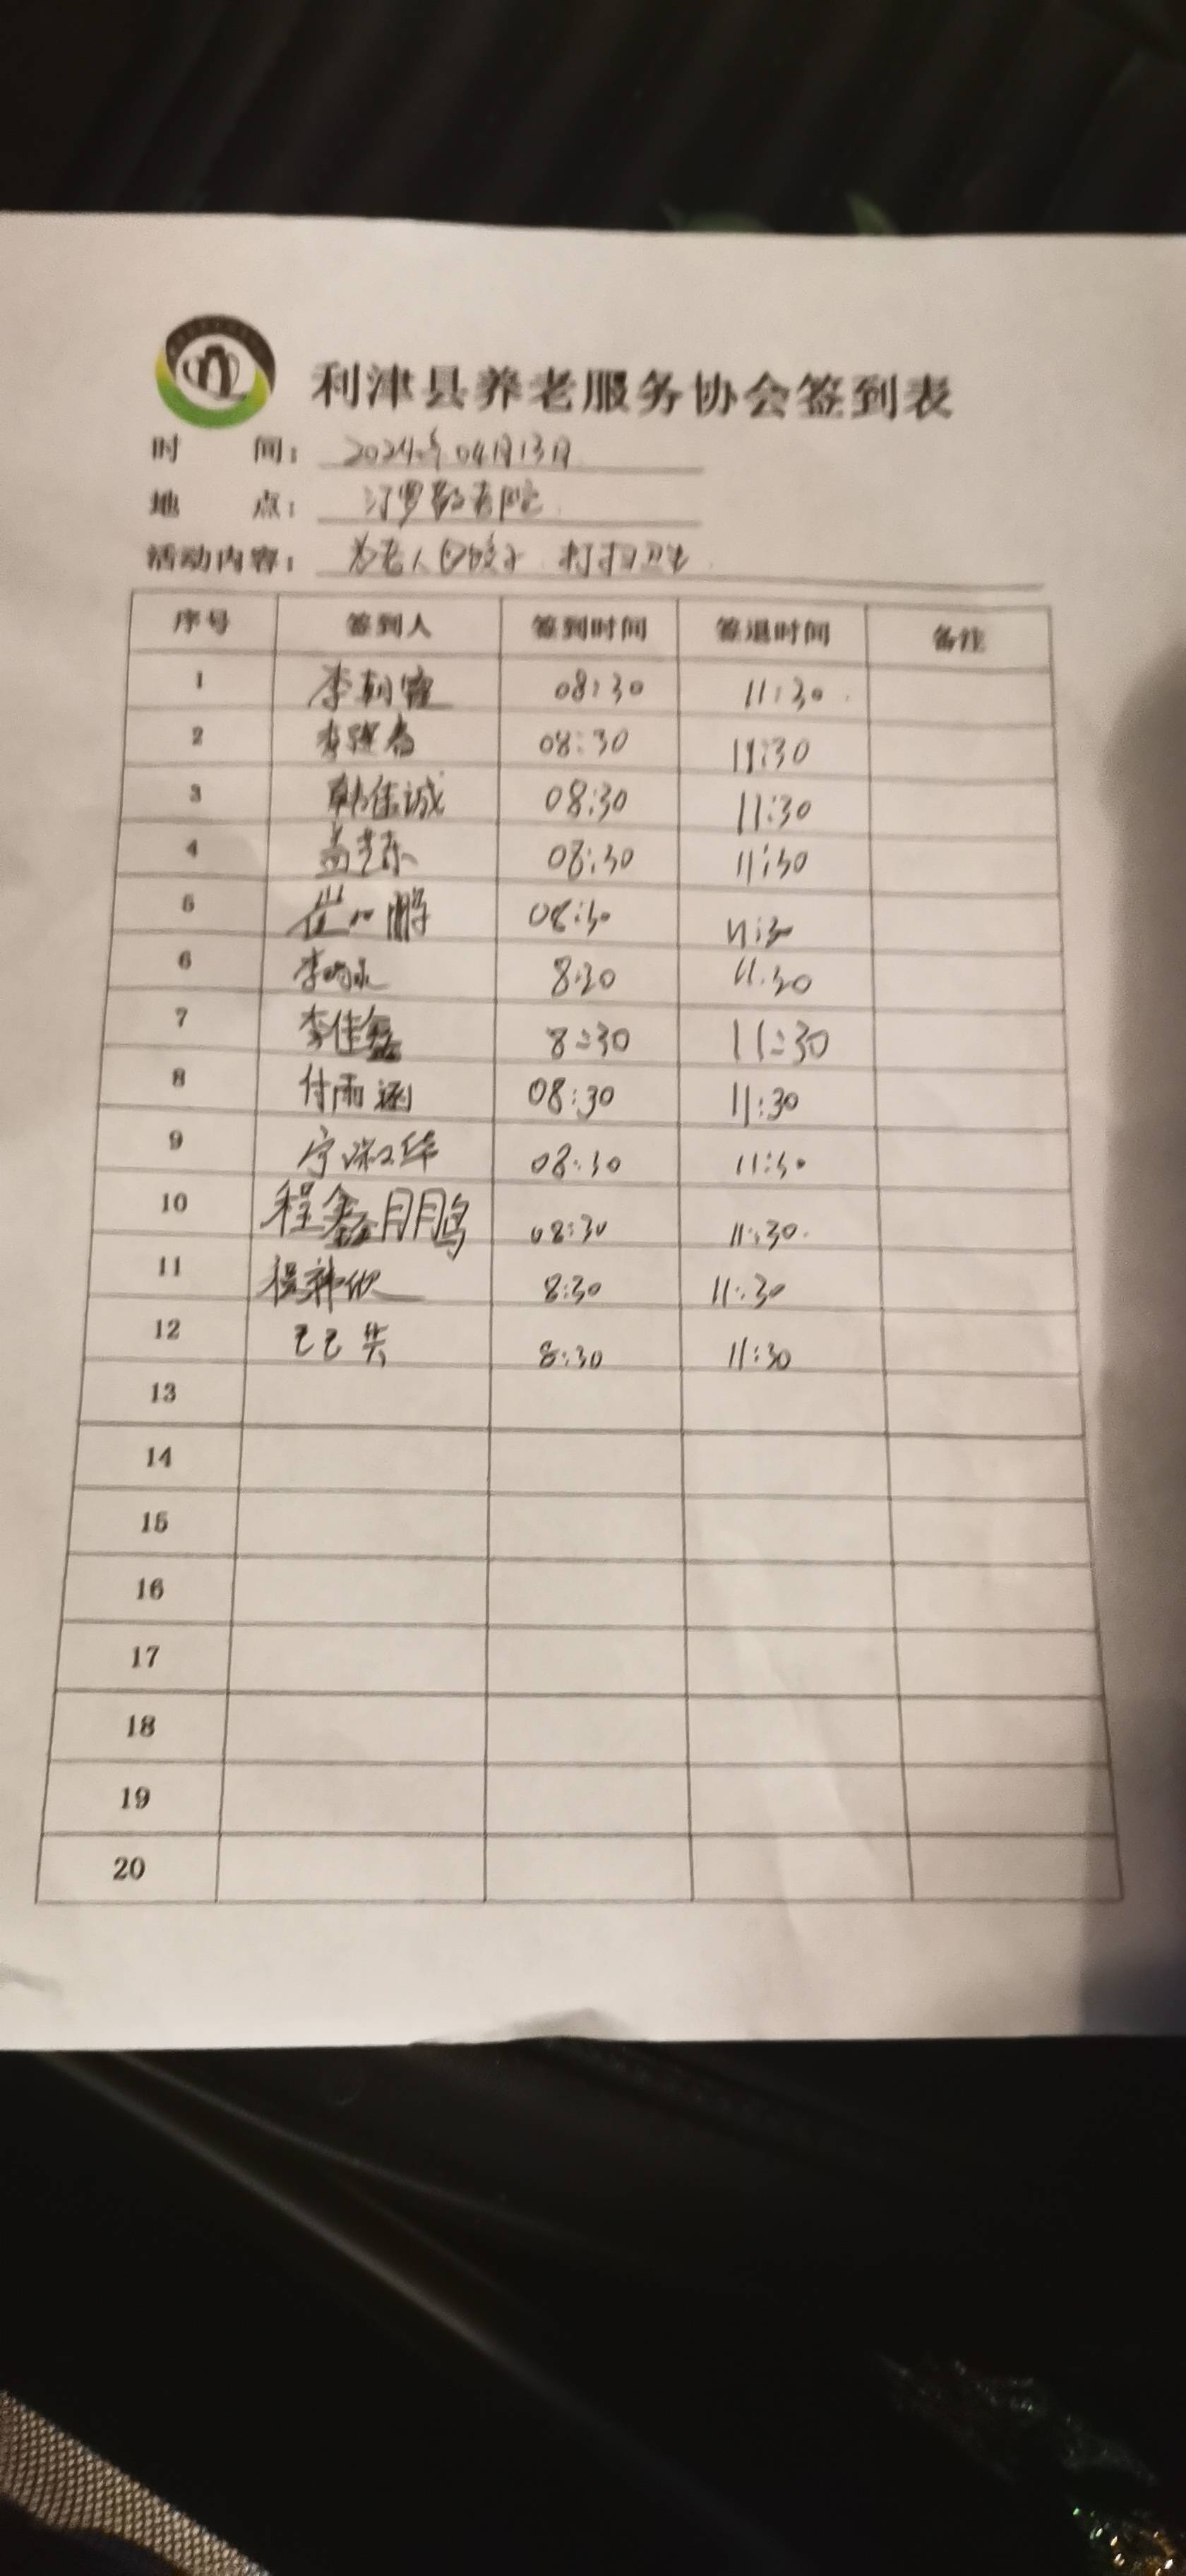 利津县养老服务协会签到表
时 间： 2024年04月13日
地 点： 汀罗敬老院
活动内容： 为老人包饺子 打扫卫生
序号 签到人 签到时间 签退时间 备注
1 李朝霞 08:30 11:30
2 李 08:30 11:30
3 韩佳诚 08:30 11:30
4 08:30 11:30
5 崔 鹏 08:30 11:30
6 李 8:30 11:30
7 李佳鑫 8:30 11:30
8 付雨涵 08:30 11:30
9 宁淑华 08:30 11:30
10 程鑫鹏 08:30 11:30
11 8:30 11:30
12 8:30 11:30
13
14
15
16
17
18
19
20